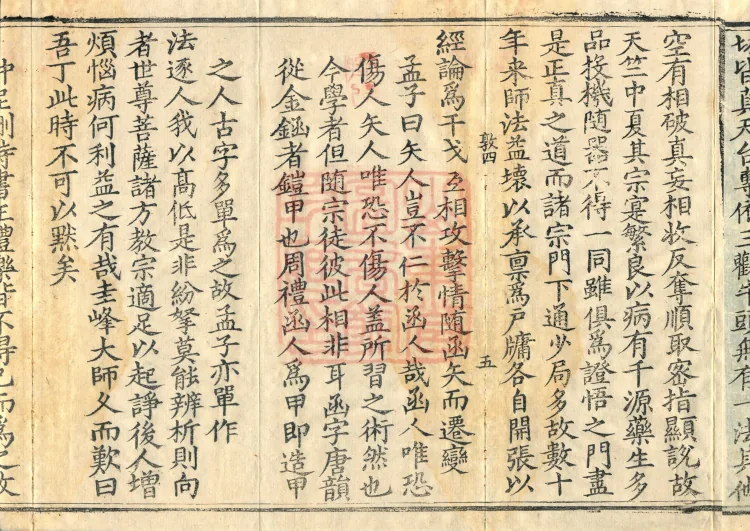 切皆真天台專依三觀牛頭無有一法其他
空有相破真妄相收反奪順取密指顯說故
天竺中夏其宗寔繁良以病有千源藥生多
品投機隨器不得一同雖俱爲證悟之門盡
是正真之道而諸宗門下通少局多故數十
年来師法益壞以承禀爲戶牖各自開張以
敦四 五
經論爲干戈互相攻擊情隨函矢而遷變
孟子曰矢人豈不仁於函人哉函人唯恐
傷人矢人唯恐不傷人盖所習之術然也
今學者但隨宗徒彼此相非耳函字唐韻
從金䤴者鎧甲也周禮函人爲甲即造甲
之人古字多單爲之故孟子亦單作
法逐人我以高低是非紛拏莫能辨析則向
者世尊菩薩諸方教宗適足以起諍後人增
煩惱病何利益之有哉圭峰大師久而歎曰
吾丁此時不可以默矣
仲尼刪詩書正禮樂皆不得已而爲之故